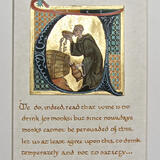 We do, indeed, read that wine is no
drink for monks; but since nowadays
monks cannot be persuaded of this,
let us at least agree upon this, to drink
temperately and not to satiety...